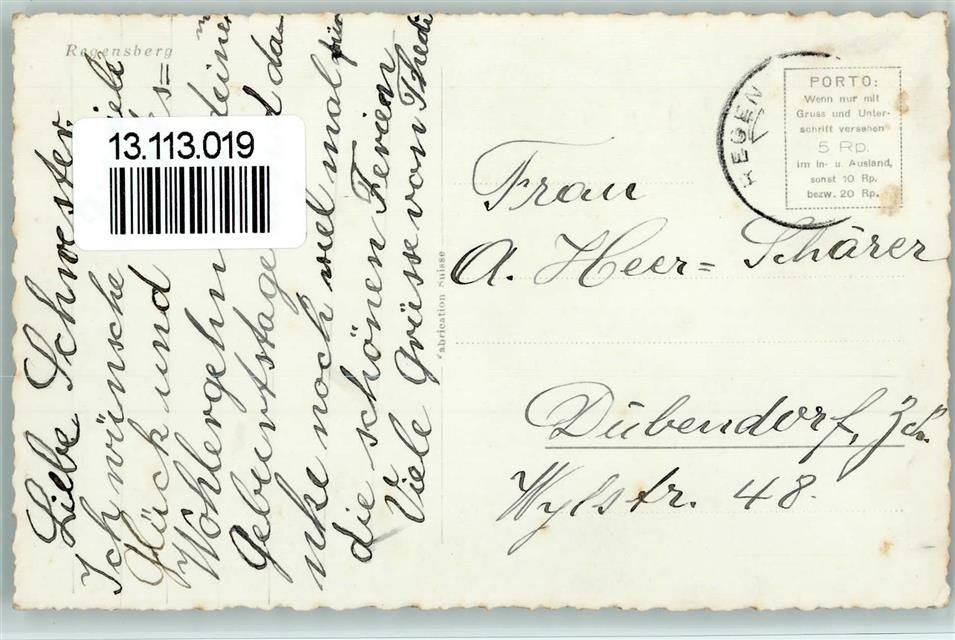 Regensberg
Liebe Schwester.
Ich wünsche
Glück und
Wohlergehn deinem
Geburtstage
nke noch viel mal für
die schönen Ferien
Viele Grüsse von Thedi
13.113.019
Fabrication Suisse
REGEN
PORTO:
Wenn nur mit
Gruss und Unter-
schrift versehen
5 Rp.
im In- u. Ausland,
sonst 10 Rp.
bezw. 20 Rp.
Frau
A. Heer= Schärer
Dübendorf, Zch.
Wylstr. 48.